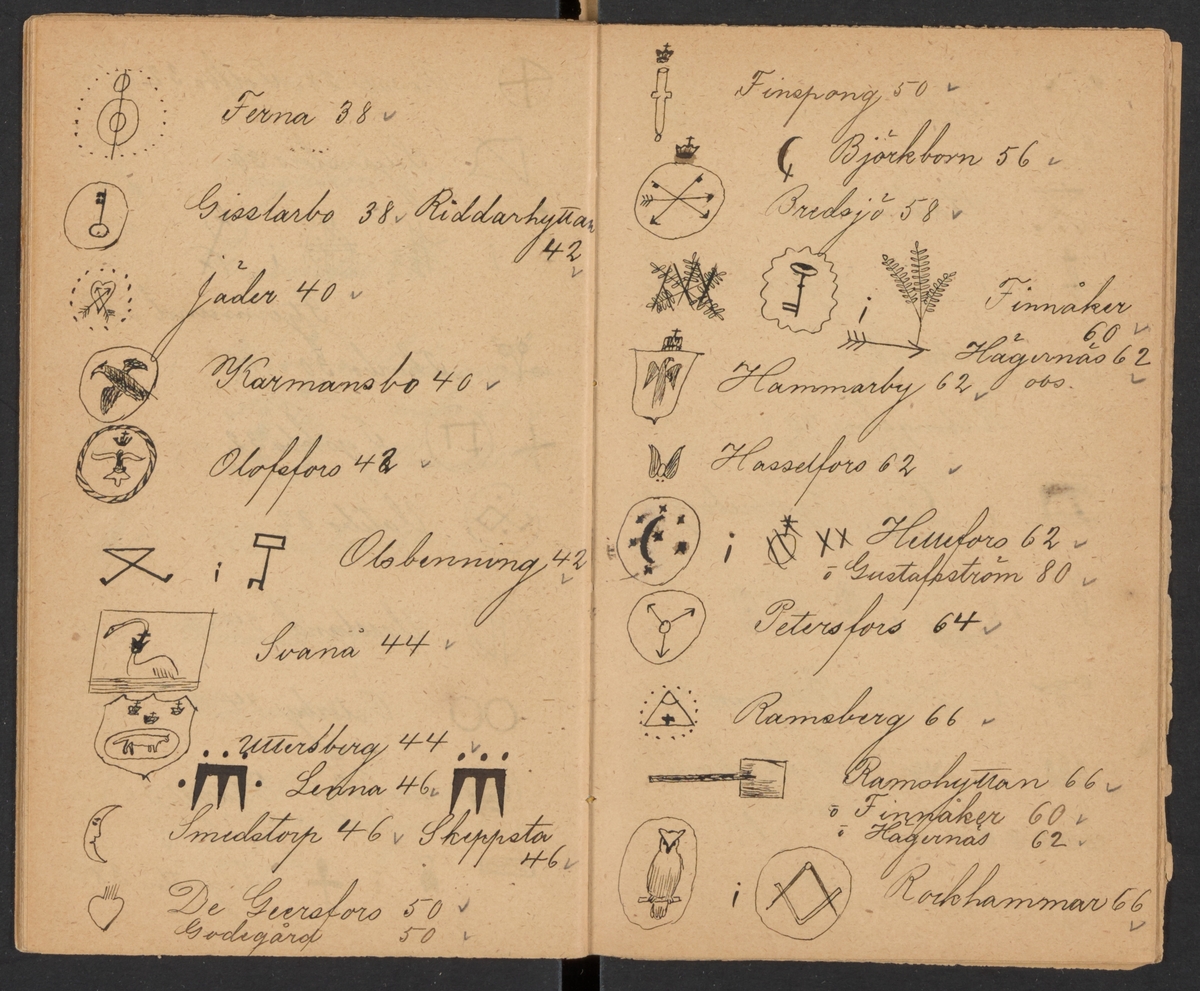 Ferna 38
Gisslarbo 38 Riddarhyttan
42
Jäder 40
Karmansbo 40
Olofsfors 42
i Olsbenning 42
Svanå 44
Uttersberg 44
Lenna 46
Smedstorp 46 Skeppsta
46
De Geersfors 50
Godegård 50
Finspong 50
Björkborn 56
Bredsjö 58
i Finnåker
60
Hägernäs 62
obs.
Hammarby 62
Hasselfors 62
i Hellefors 62
o Gustafsström 80
Petersfors 64
Ramsberg 66
Ramshyttan 66
o Finnåker 60
o Hägernäs 62
i Rockhammar 66